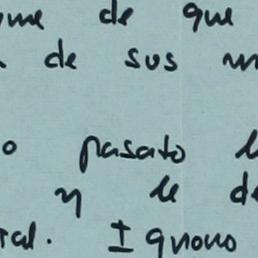 me de que
de sus
o pasato
y le de
tal. Ignoro